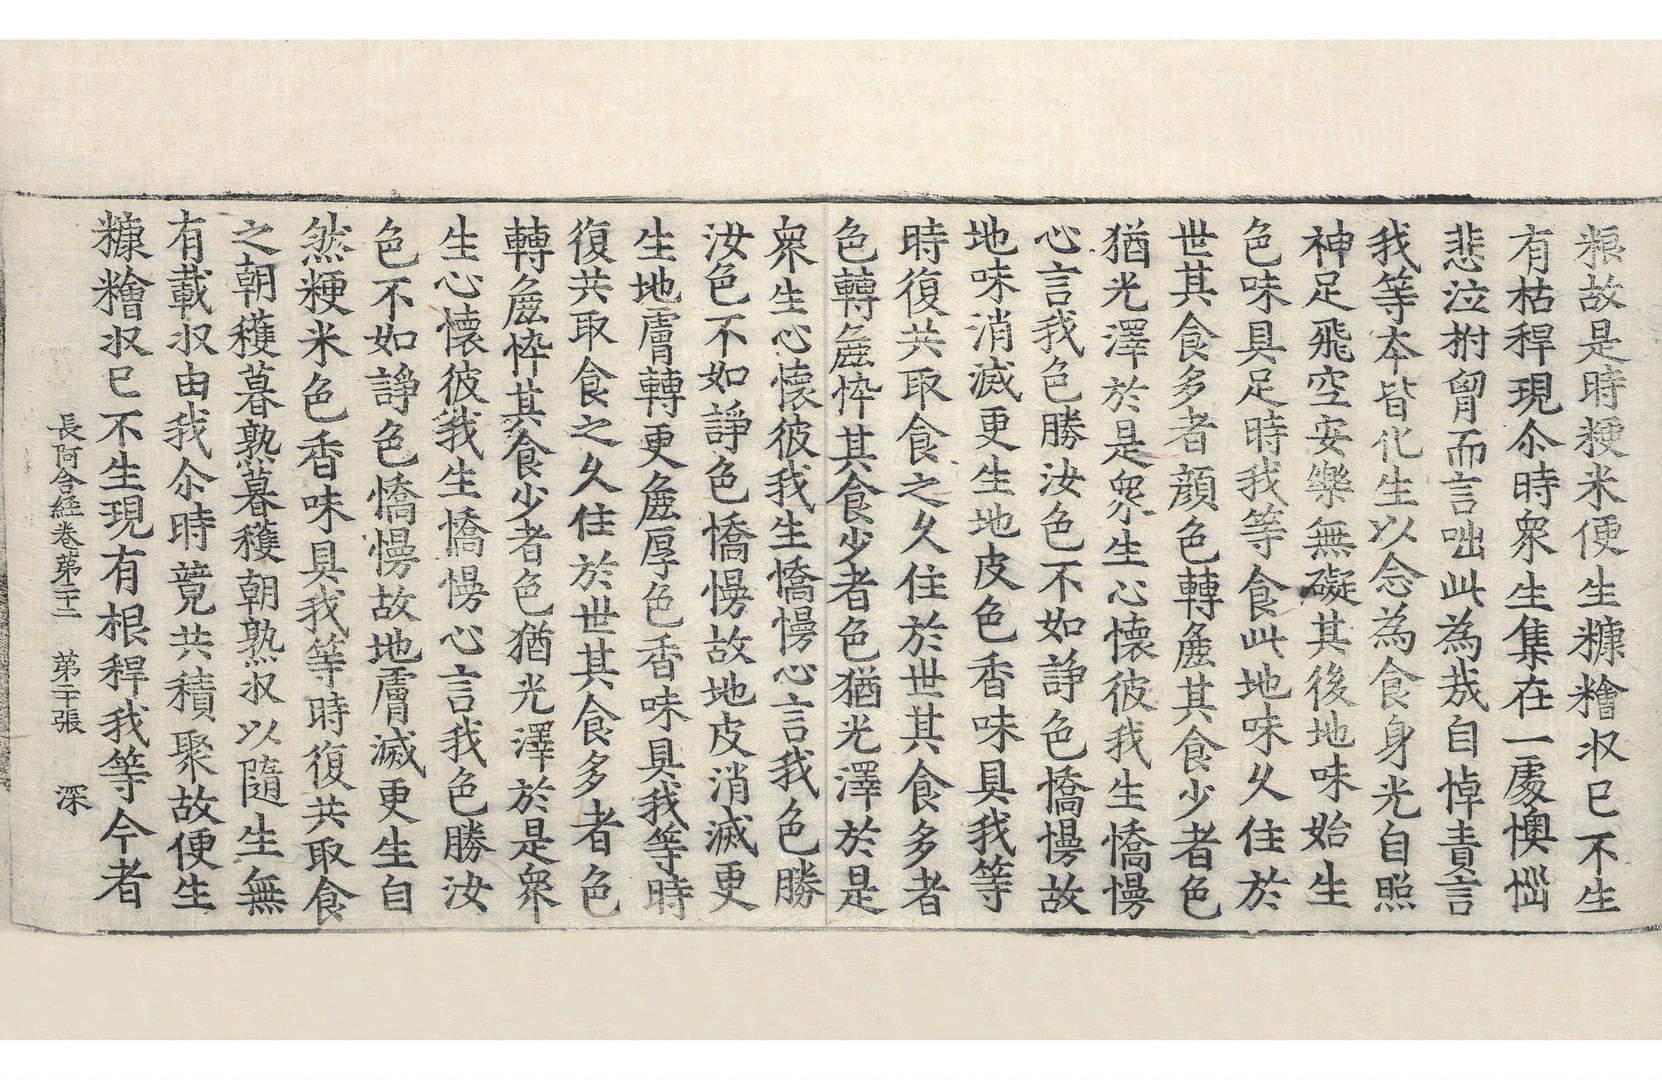 粮故是時粳米便生糠糩収已不生
有枯稈現尒時衆生集在一處懊惱
悲泣拊胷而言咄此為哉自悼責言
我等夲皆化生以念為食身光自照
神足飛空安樂無礙其後地味始生
色味具足時我等食此地味久住於
世其食多者顔色轉麁其食少者色
猶光澤於是衆生心懷彼我生憍慢
心言我色勝汝色不如諍色憍慢故
地味消滅更生地皮色香味具我等
時復共取食之久住於世其食多者
色轉麁悴其食少者色猶光澤於是
衆生心懷彼我生憍慢心言我色勝
汝色不如諍色憍慢故地皮消滅更
生地膚轉更麁厚色香味具我等時
復共取食之久住於世其食多者色
轉麁悴其食少者色猶光澤於是衆
生心懷彼我生憍慢心言我色勝汝
色不如諍色憍慢故地膚滅更生自
然粳米色香味具我等時復共取食
之朝穫暮熟暮穫朝熟収以隨生無
有載収由我尒時競共積聚故便生
糠糩収已不生現有根稈我等今者
長阿含經卷苐二十二 苐二十張 深